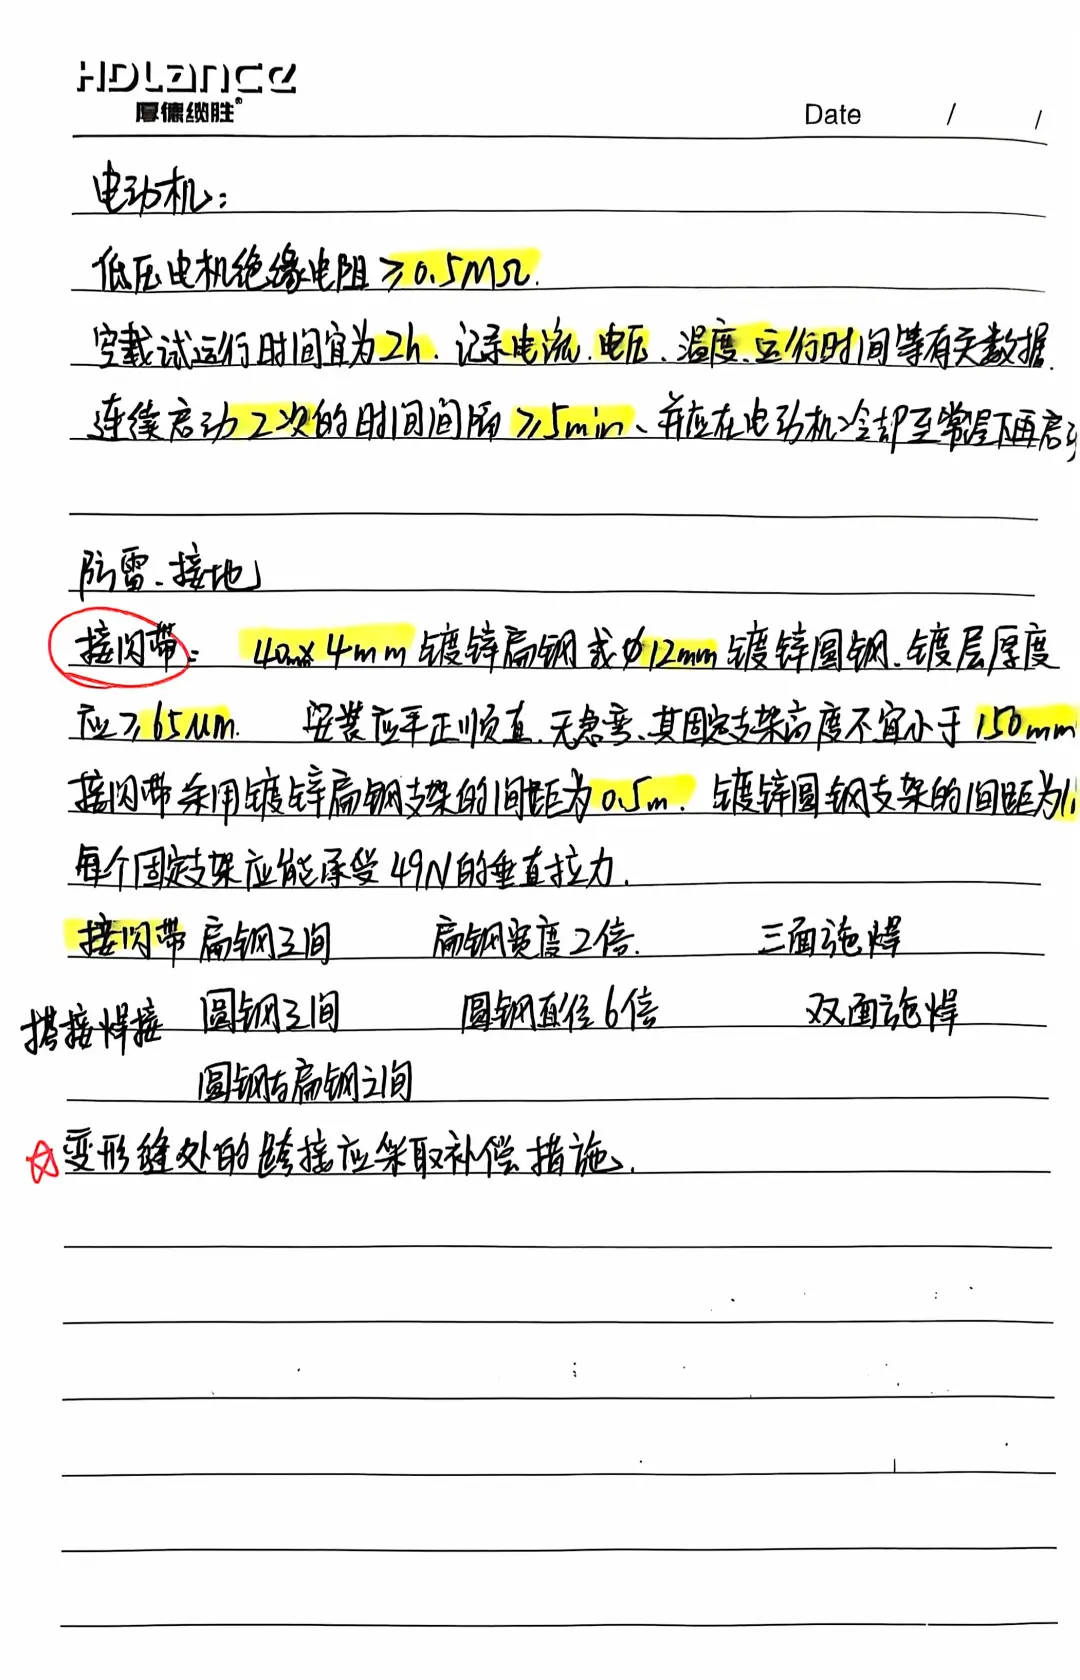 HDLANCE
厚德缆胜®
Date / /
电动机:
低压电机绝缘电阻≥0.5MΩ.
空载试运行时间宜为2h. 记录电流.电压.温度.运行时间等有关数据.
连续启动2次的时间间隔≥5min、并应在电动机冷却至常温下再启动
防雷、接地
接闪带: 40mm×4mm镀锌扁钢或φ12mm镀锌圆钢、镀层厚度
应≥65μm. 安装应平正顺直.无急弯、其固定支架高度不宜小于150mm
接闪带采用镀锌扁钢支架的间距为0.5m. 镀锌圆钢支架的间距为1
每个固定支架应能承受49N的垂直拉力.
接闪带 扁钢之间 扁钢宽度2倍. 三面施焊
搭接焊接 圆钢之间 圆钢直径6倍 双面施焊
圆钢与扁钢之间
☆变形缝处的跨接应采取补偿措施.